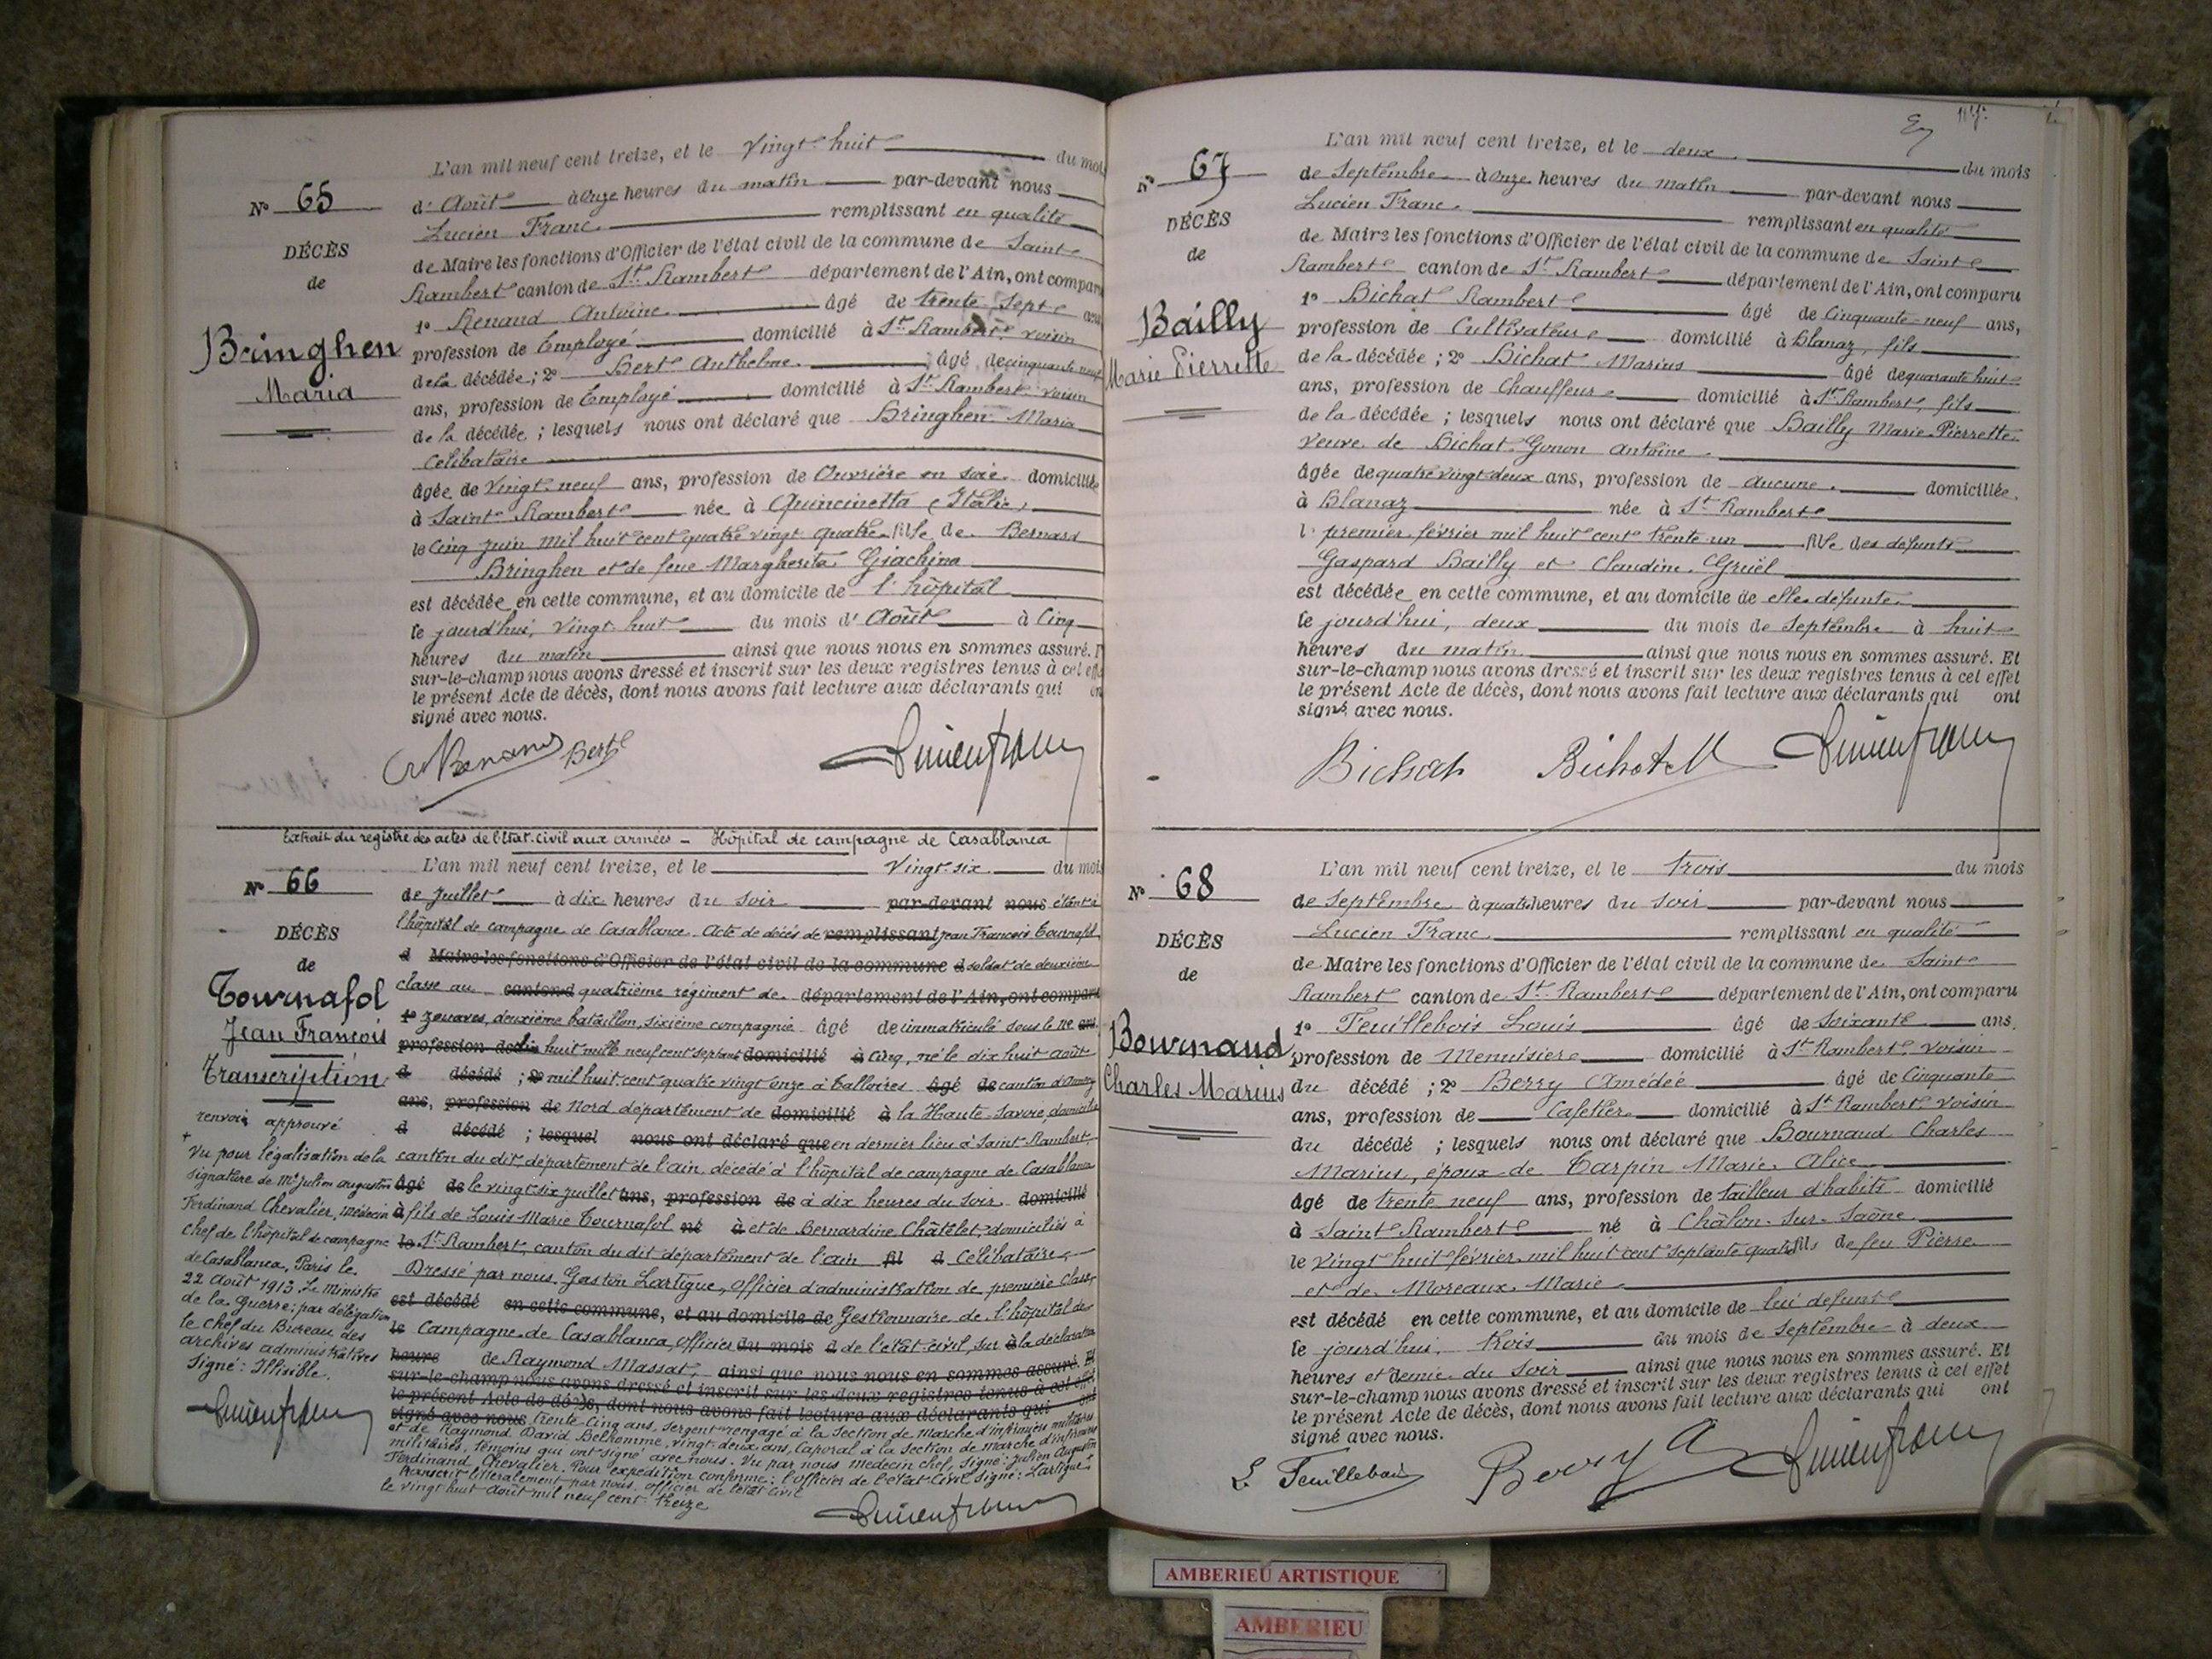 L'an mil neuf cent treize, et le vingt huit du mois
N° 65
d' Août à onze heures du matin par-devant nous
Lucien Franc remplissant en qualité
DÉCÈS
de Maire les fonctions d'Officier de l'état civil de la commune de Saint
de
Rambert canton de St. Rambert département de l'Ain, ont comparu
1° Renaud Antoine âgé de trente sept ans
Bringhen
profession de Employé domicilié à St. Rambert, voisin
Maria
de la décédée ; 2° Bert Anthelme. âgé de cinquante neuf
ans, profession de Employé domicilié à St. Rambert voisin
de la décédée ; lesquels nous ont déclaré que Bringhen Maria
célibataire
âgée de vingt neuf ans, profession de Ouvrière en soie domiciliée
à Saint Rambert née à Quincinetta (Italie)
le cinq juin mil huit cent quatre vingt quatre fille de Bernard
Bringhen et de feue Margherita Giachino
est décédée en cette commune, et au domicile de l'hôpital
le jourd'hui, vingt huit du mois d' Août à cinq
heures du matin ainsi que nous nous en sommes assuré.
sur-le-champ nous avons dressé et inscrit sur les deux registres tenus à cet effe
le présent Acte de décès, dont nous avons fait lecture aux déclarants qui on
signé avec nous.
Bert
Extrait du registre des actes de l'État-civil aux armées – Hôpital de campagne de Casablanca
L'an mil neuf cent treize, et le vingt-six du mois
N° 66
de juillet à dix heures du soir par-devant nous étant à
l'hôpital de campagne de Casablanca. Acte de décès de remplissant Jean François Tournafol
DÉCÈS
d Maire les fonctions d'Officier de l'état civil de la commune d soldat de deuxième
de
classe au canton d quatrième régiment de département de l'Ain, ont comparu
Tournafol
1° zouaves, deuxième bataillon, sixième compagnie âgé de immatriculé sous le n° ans
Jean François
profession de dix huit mille neuf cent septante domicilié à cinq, né le dix huit août
Transcription
d décédé ; 2° mil huit cent quatre vingt onze à Talloires âgé de canton d'Annecy
ans, profession de Nord département de domicilié à la Haute-Savoie, domicilié
renvoi approuvé
d décédé ; lesquel nous ont déclaré que en dernier lieu à Saint Rambert,
+ Vu pour légalisation de la
canton du dit, département de l'ain, décédé à l'hôpital de campagne de Casablanca
signature de Mr Julien Augustin
âgé de le vingt-six juillet ans, profession de à dix heures du soir. domicilié
Ferdinand Chevalier, médecin
à fils de Louis Marie Tournafol né à et de Bernardine Châtelet, domiciliés à
chef de l'hôpital de campagne
le St Rambert, canton du dit département de l'ain fil d Célibataire.
de Casablanca, Paris le
Dressé par nous Gaston Lartigue, officier d'administration de première classe
22 Août 1913. Le Ministre
est décédé en cette commune, et au domicile de Gestionnaire de l'hôpital de
de la Guerre ; par délégation
le Campagne de Casablanca, officier du mois d de l'état-civil, sur à la déclaration
le chef du Bureau des
archives administratives
heure de Raymond Massat, ainsi que nous nous en sommes assuré. Et
Signé : Illisible.
sur-le-champ nous avons dressé et inscrit sur les deux registres tenus à cet effet
le présent Acte de décès, dont nous avons fait lecture aux déclarants qui ont
signé avec nous trente cinq ans, sergent rengagé à la section de marche d'infirmiers militaires
et de Raymond David Belhomme, vingt-deux ans, caporal à la section de marche d'infirmiers
militaires, témoins qui ont signé avec nous. Vu par nous médecin chef, signé : Julien Augustin
Ferdinand Chevalier. Pour expédition conforme : l'officier de l'état-civil signé : Lartigue.
Transcrit littéralement par nous, officier de l'état civil
le vingt huit août mil neuf cent treize
L'an mil neuf cent treize, et le deux du mois
N° 67
de Septembre à onze heures du matin par-devant nous
Lucien Franc. remplissant en qualité
DÉCÈS
de Maire les fonctions d'Officier de l'état civil de la commune de Saint
de
Rambert canton de St. Rambert département de l'Ain, ont comparu
1° Bichat Rambert âgé de Cinquante-neuf ans,
Bailly
profession de Cultivateur domicilié à Blanaz, fils
Marie Pierrette
de la décédée ; 2° Bichat Marius âgé de quarante huit
ans, profession de Chauffeur domicilié à St. Rambert, fils
de la décédée ; lesquels nous ont déclaré que Bailly Marie-Pierrette
veuve de Bichat-Gonon Antoine
âgée de quatre vingt deux ans, profession de aucune domiciliée
à Blanaz née à St. Rambert
l premier février mil huit cent trente un fille des défunts
Gaspard Bailly et Claudine Gruël
est décédée en cette commune, et au domicile de elle défunte
le jourd'hui, deux du mois de Septembre à huit
heures du matin ainsi que nous nous en sommes assuré. Et
sur-le-champ nous avons dressé et inscrit sur les deux registres tenus à cet effet
le présent Acte de décès, dont nous avons fait lecture aux déclarants qui ont
signé avec nous.
Bichat Bichat M
L'an mil neuf cent treize, et le trois du mois
N° 68
de Septembre à quatre heures du soir par-devant nous
Lucien Franc remplissant en qualité
DÉCÈS
de Maire les fonctions d'Officier de l'état civil de la commune de Saint
de
Rambert canton de St. Rambert département de l'Ain, ont comparu
1° Feuillebois Louis âgé de Soixante ans,
Bournaud
profession de Menuisier domicilié à St Rambert, voisin
Charles Marius
du décédé ; 2° Berry Amédée âgé de Cinquante
ans, profession de Cafetier domicilié à St Rambert, voisin
du décédé ; lesquels nous ont déclaré que Bournaud Charles
Marius, époux de Tarpin Marie Alice
âgé de trente neuf ans, profession de tailleur d'habits domicilié
à Saint Rambert né à Châlon-sur-Saône
le vingt huit février mil huit cent septante quatre fils de feu Pierre
et de Moreaux Marie
est décédé en cette commune, et au domicile de lui défunt
le jourd'hui, trois du mois de Septembre à deux
heures et demie du soir ainsi que nous nous en sommes assuré. Et
sur-le-champ nous avons dressé et inscrit sur les deux registres tenus à cet effet
le présent Acte de décès, dont nous avons fait lecture aux déclarants qui ont
signé avec nous.
L. Feuillebois Berry A
AMBERIEU ARTISTIQUE
AMBERIEU